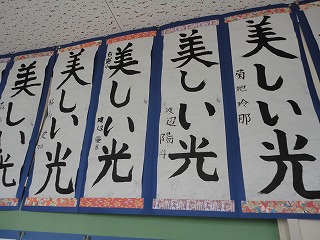 美しい光
菊地玲那
美しい光
渡辺陽斗
美しい光
美しい光
美しい光